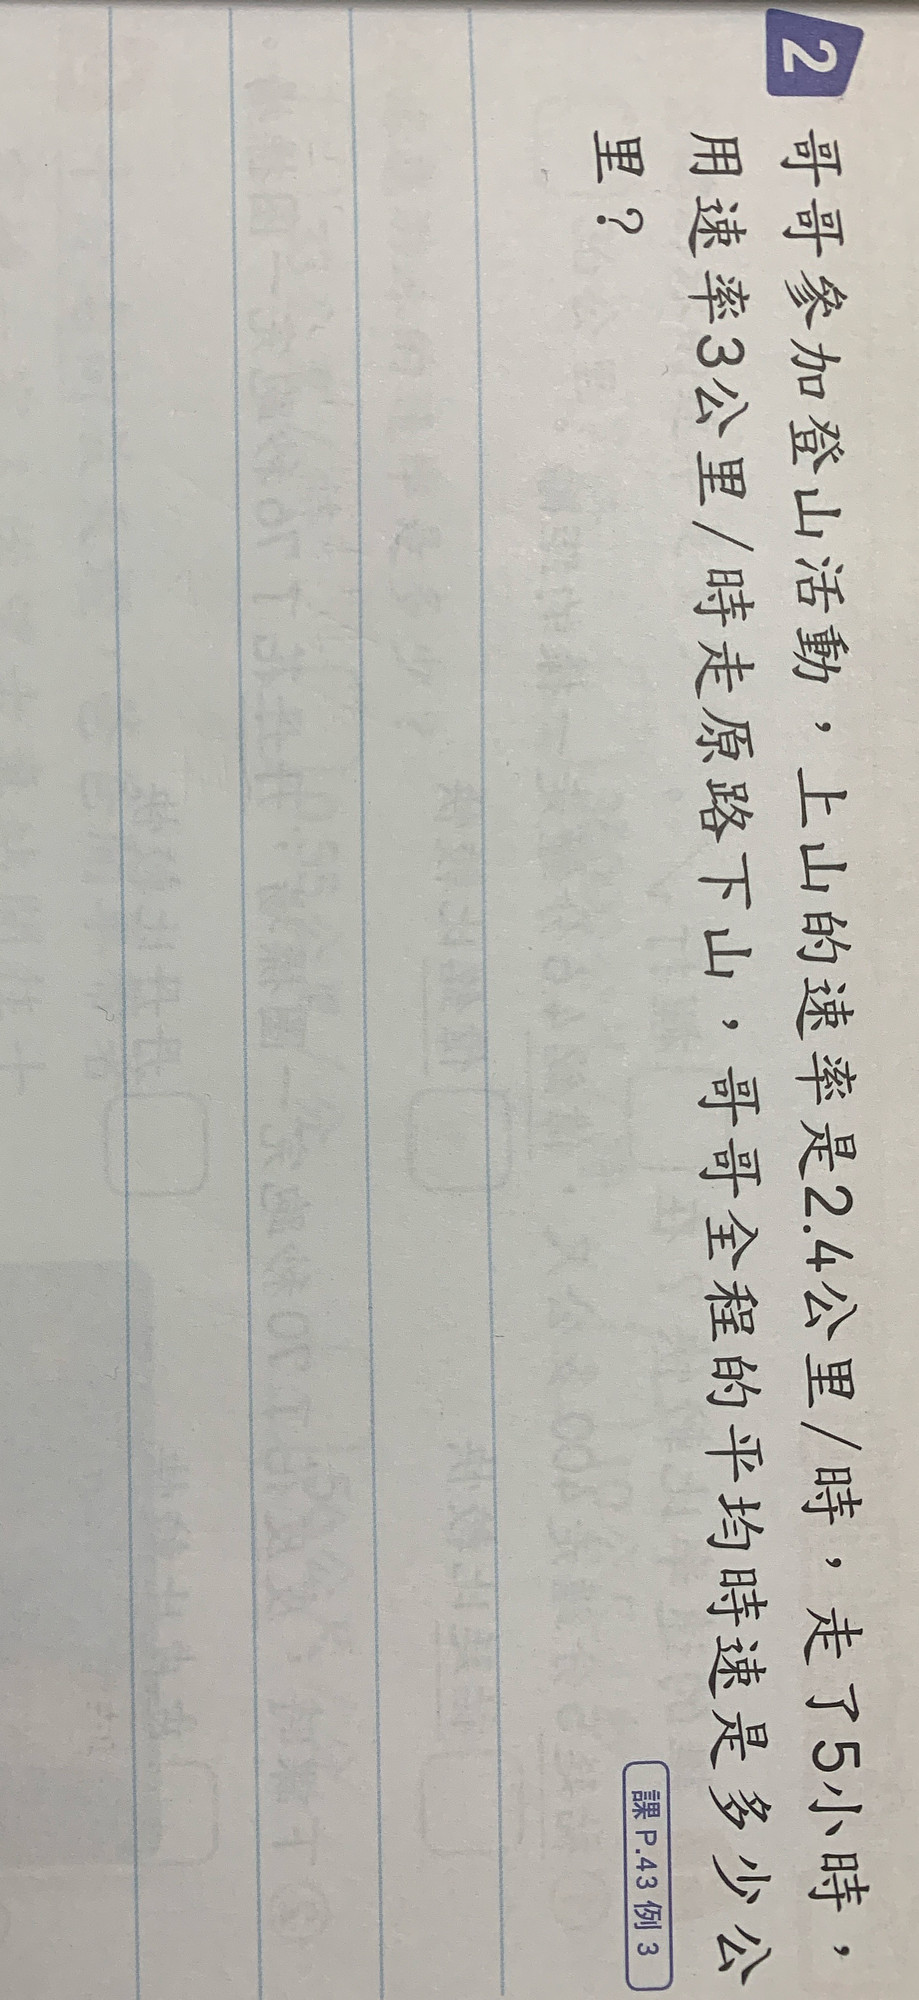 2
哥哥參加登山活動，上山的速率是2.4公里/時，走了5小時，
用速率3公里/時走原路下山，哥哥全程的平均時速是多少公
里？
課 P.43 例 3